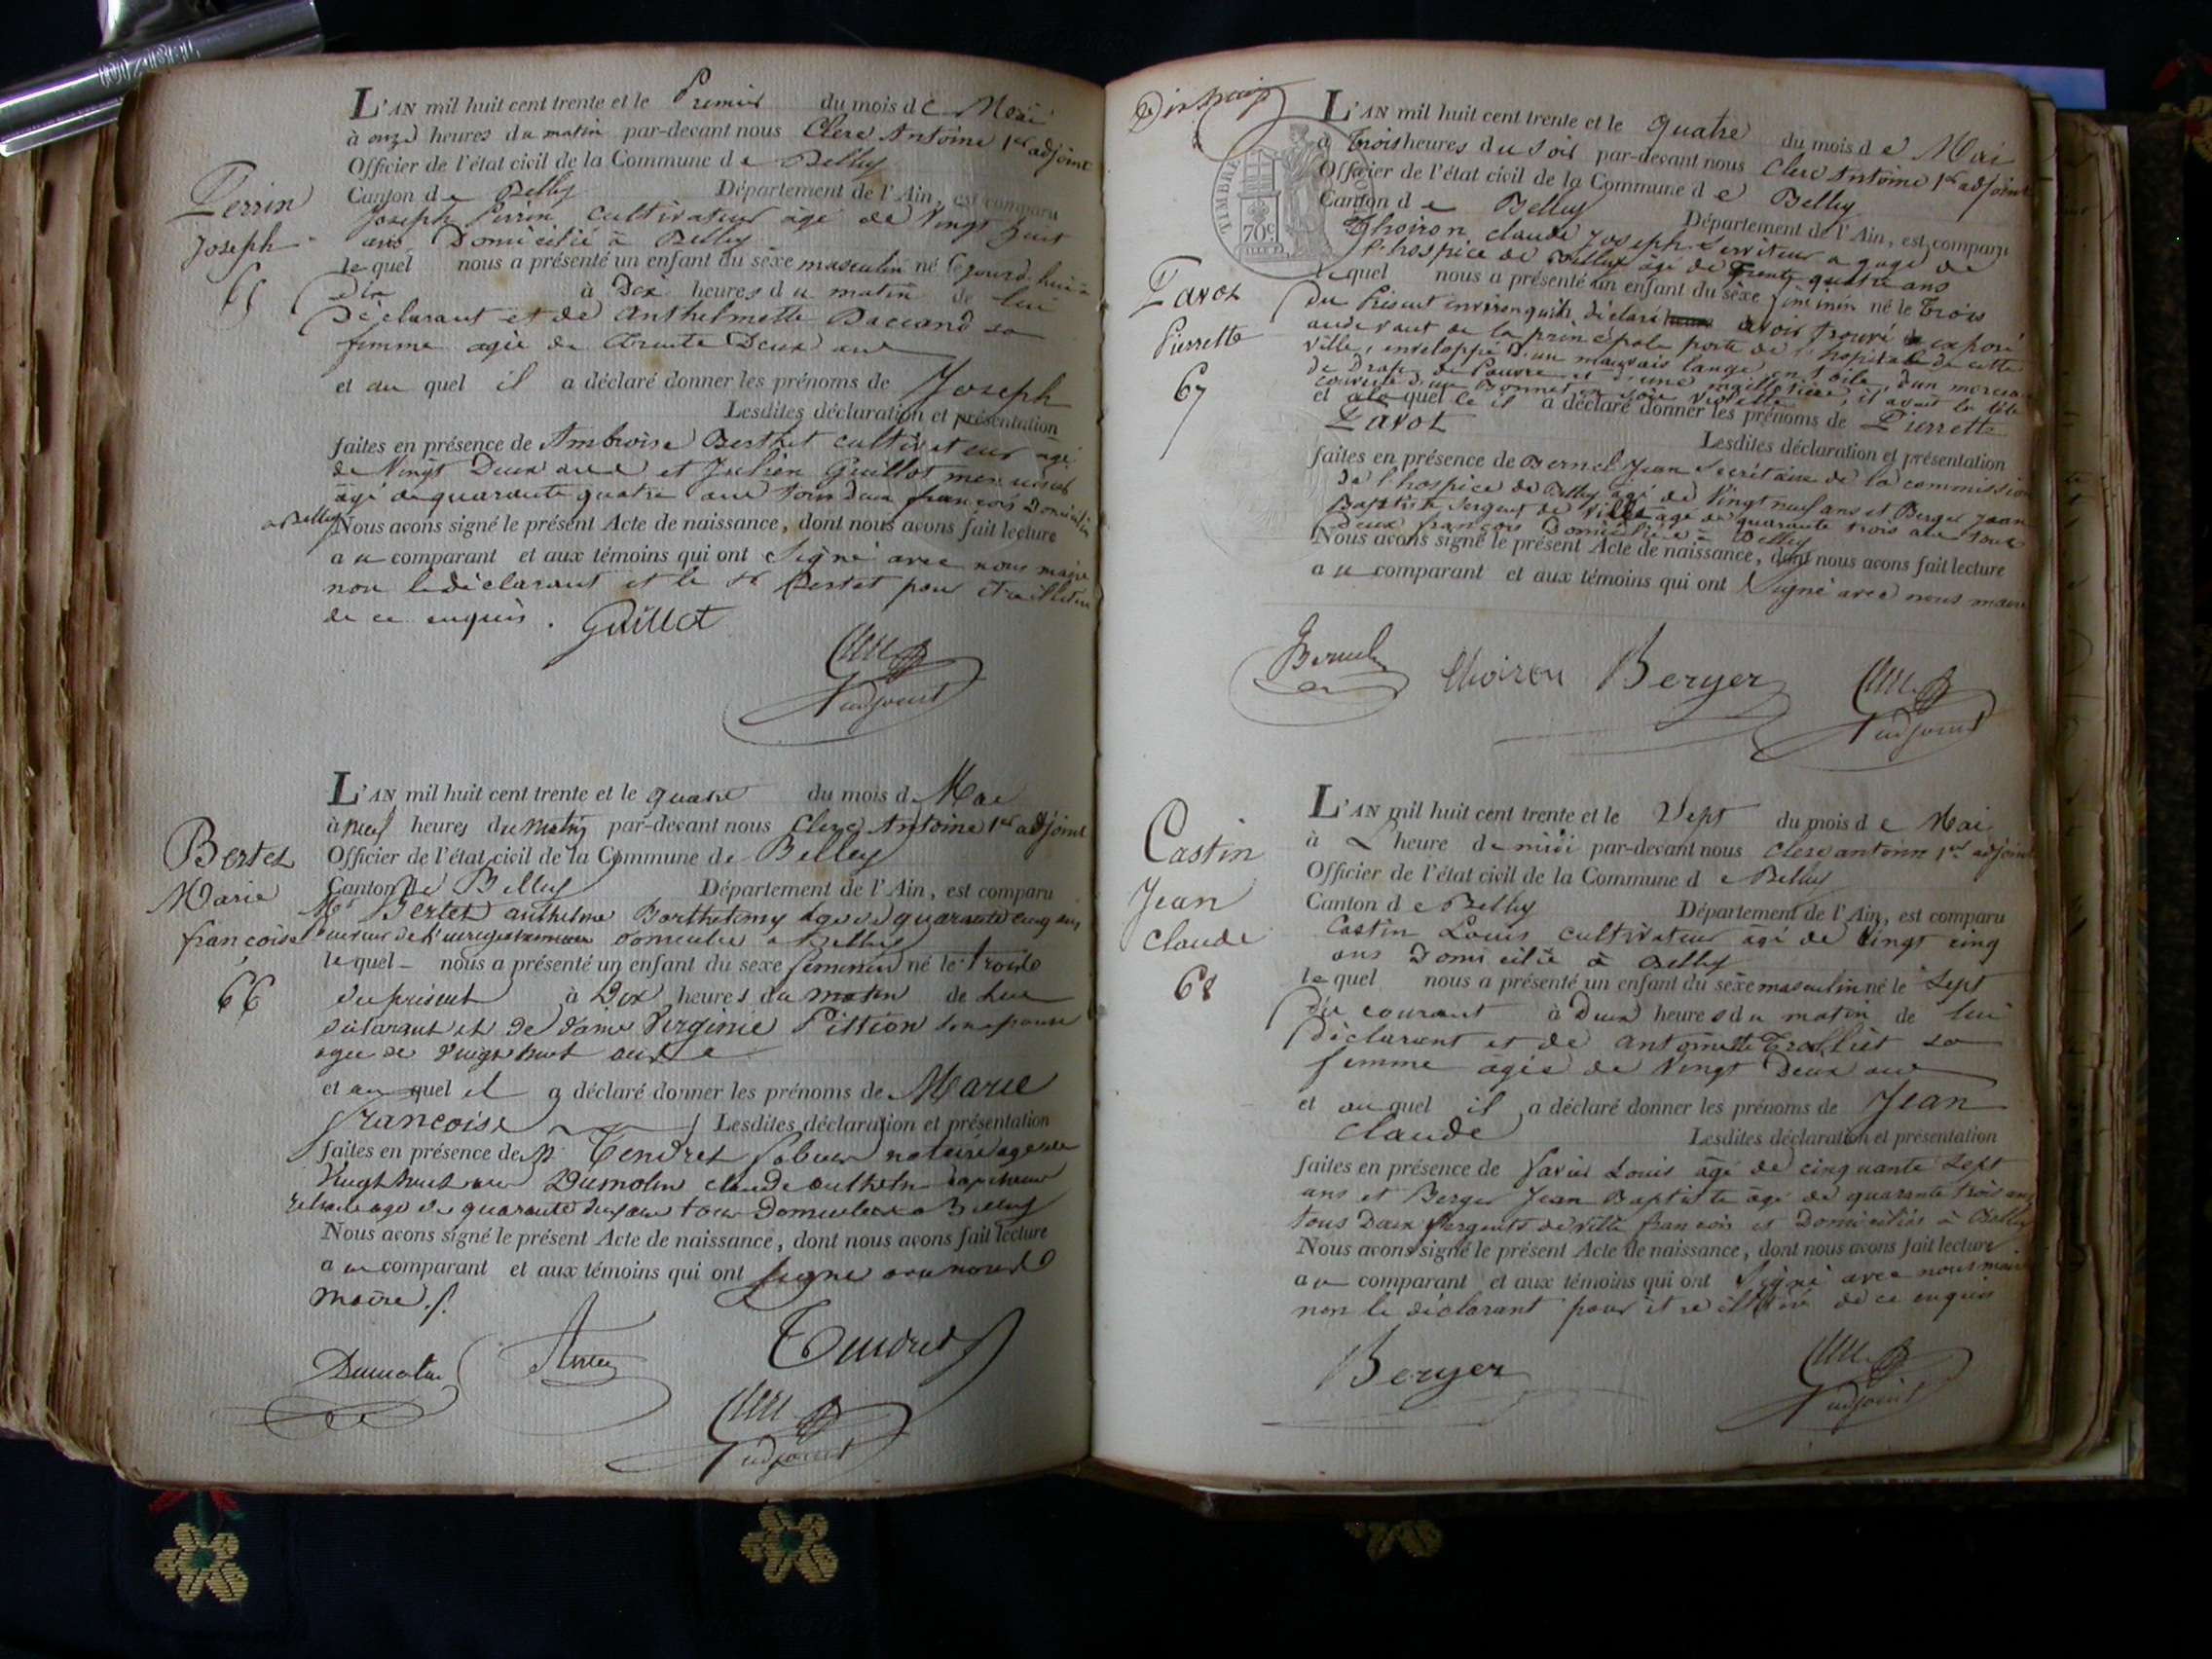 L'AN mil huit cent trente et le Premier du mois de Mai
à onze heures du matin par-devant nous Clerc Antoine 1er adjoint
Officier de l'état civil de la Commune de Belley
Canton de Belley Département de l'Ain, est comparu
Joseph Perrin cultivateur âgé de Vingt huit
ans Domicilié à Belley
lequel nous a présenté un enfant du sexe masculin né le jourd'hui
à Dix heures du matin de lui
Déclarant et de Anthelmette Baccand sa
femme agée de trente Deux ans
et au quel il a déclaré donner les prénoms de Joseph
Lesdites déclaration et présentation
faites en présence de Ambroise Berthet cultivateur agé
de Vingt Deux ans et Julien Guillot menuisier
âgé de quarante quatre ans tous deux françois Domiciliés
à Belley Nous avons signé le présent Acte de naissance, dont nous avons fait lecture
au comparant et aux témoins qui ont Signé avec nous maire
non le déclarant et le Sr Bertet pour être illitéré
de ce enquis. Guillot
Clerc
adjoint
Perrin
Joseph
65
L'AN mil huit cent trente et le quatre du mois de Mai
à neuf heures du matin par-devant nous Clerc Antoine 1er adjoint
Officier de l'état civil de la Commune de Belley
Canton de Belley Département de l'Ain, est comparu
Mr Bertet anthelme Barthelemy agé de quarante cinq ans
receveur de l'enregistrement domicilié a Belley
lequel nous a présenté un enfant du sexe feminin né le trois
du présent à Dix heures du matin de lui
déclarant et de dame Virginie Pittion son epouse
agée de Vingt huit ans
et au quel il a déclaré donner les prénoms de Marie
francoise Lesdites déclaration et présentation
faites en présence de Mr Tendret notaire agé de
Vingt huit ans Dumolin claude anthelme
retraité agé de quarante deux ans tous Domiciliés a Belley
Nous avons signé le présent Acte de naissance, dont nous avons fait lecture
au comparant et aux témoins qui ont signé avec nous
maire ./.
Dumolin Tendret
Clerc
adjoint
Bertet
Marie
françoise
66
TIMBRE ROYAL
70c
L'AN mil huit cent trente et le quatre du mois de Mai
à trois heures du soir par-devant nous Clerc Antoine 1er adjoint
Officier de l'état civil de la Commune de Belley
Canton de Belley Département de l'Ain, est comparu
Thoiron claude Joseph Serviteur a gage de
l'hospice de Belley âgé de trente quatre ans
lequel nous a présenté un enfant du sexe féminin né le trois
du Présent environ qu'il déclare avoir trouvé exposé
audevant de la principale porte de l'hopital de cette
ville, enveloppé d'un mauvais lange en toile, d'un morceau
de Drap de Pauvre et d'une maillotière, il avait la tête
couverte d'un Bonnet en soie violette
et alaquelle il a déclaré donner les prénoms de Pierrette
Pavot
Lesdites déclaration et présentation
faites en présence de Bernel Jean Secrétaire de la commission
de l'hospice de Belley âgé de Vingt neuf ans et Berger Jean
Baptiste Sergent de Ville agé de quarante trois ans tous
Deux françois Domiciliés à Belley
Nous avons signé le présent Acte de naissance, dont nous avons fait lecture
au comparant et aux témoins qui ont Signé avec nous maire
Bernel Thoiron Berger Clerc
adjoint
Pavot
Pierrette
67
L'AN mil huit cent trente et le Sept du mois de Mai
à L heure de midi par-devant nous Clerc antoine 1er adjoint
Officier de l'état civil de la Commune de Belley
Canton de Belley Département de l'Ain, est comparu
Castin Louis cultivateur âgé de Vingt cinq
ans Domicilié à Belley
lequel nous a présenté un enfant du sexe masculin né le Sept
du courant à Deux heures du matin de lui
déclarant et de antoinette Trolliet sa
femme âgée de Vingt Deux ans
et au quel il a déclaré donner les prénoms de Jean
claude Lesdites déclaration et présentation
faites en présence de Savin Louis âgé de cinquante Sept
ans et Berger Jean Baptiste âgé de quarante trois ans
tous Deux Sergents de ville françois et Domiciliés à Belley
Nous avons signé le présent Acte de naissance, dont nous avons fait lecture
au comparant et aux témoins qui ont Signé avec nous maire
non le déclarant pour être illitéré de ce enquis
Berger Clerc
adjoint
Castin
Jean
Claude
68